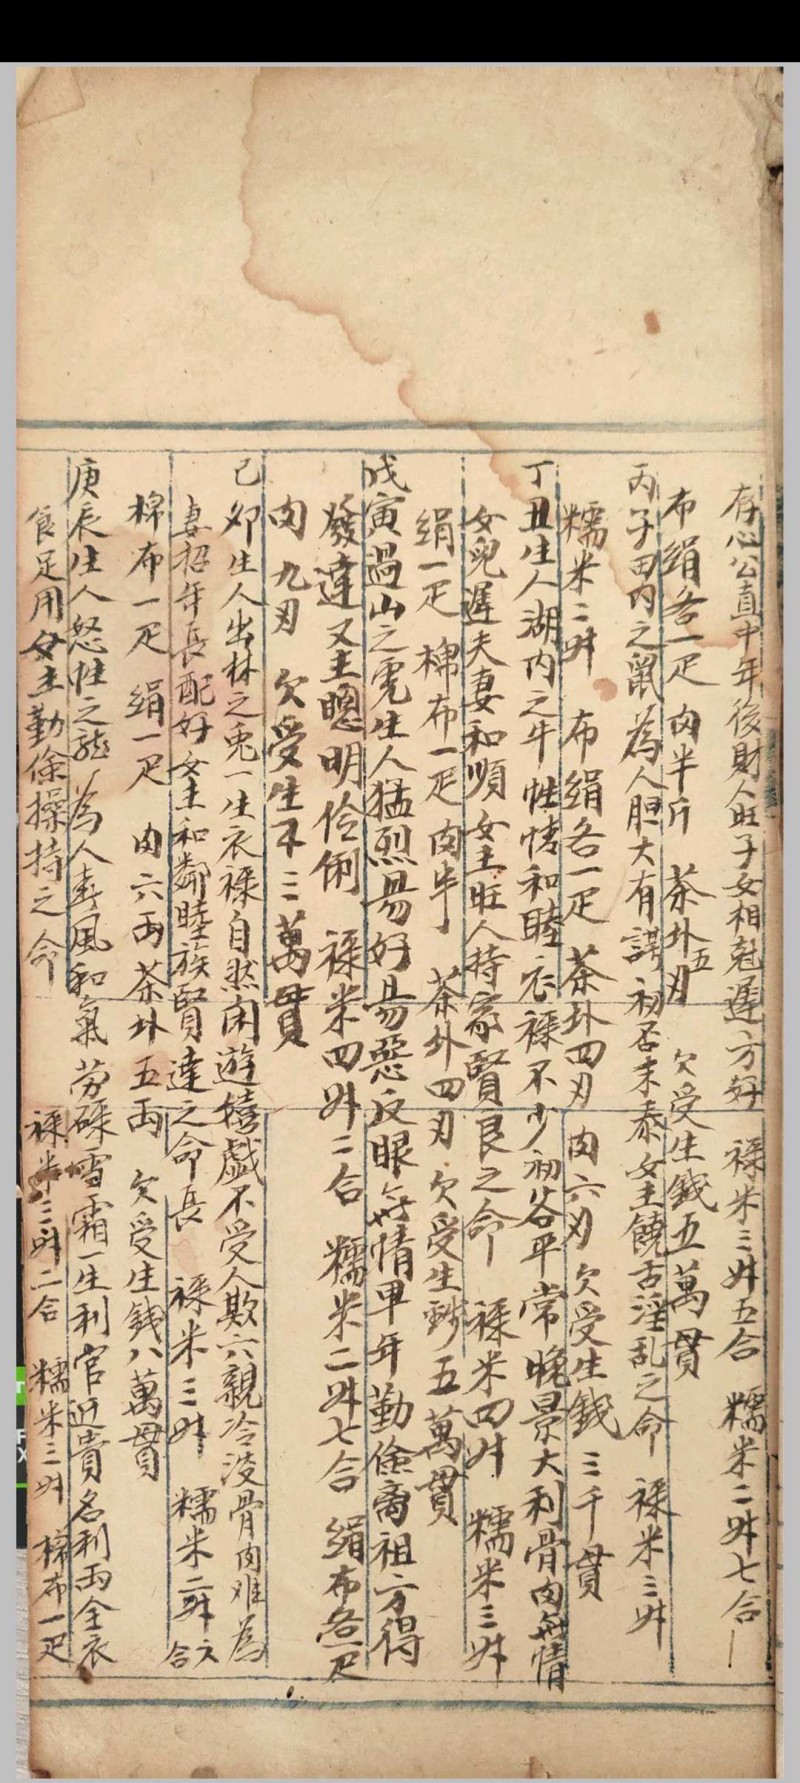 存心公直中年後財人旺子女相尅遲方好 祿米三升五合 糯米二升七合
布絹各一疋 肉半斤 茶外五刄 欠受生錢五萬貫
丙子田内之鼠為人胆大有謀初否末泰女主饒舌淫乱之命 祿米三升
糯米二升 布絹各一疋 茶外四刄 肉六刄 欠受生錢三千貫
丁丑生人湖内之牛性情和睦衣祿不少初谷平常晚景大利骨肉無情
女兒遲夫妻和順女主旺人持家賢良之命 祿米四升 糯米三升
絹一疋 棉布一疋 肉半 茶外四刄 欠受生錢五萬貫
戊寅過山之虎生人猛烈易好易惡反眼無情早年勤儉离祖方得
發達又主聰明伶俐 祿米四升二合 糯米二升七合 絹布各一疋
肉九刄 欠受生不三萬貫
己卯生人出林之兎一生衣祿自然闲遊嬉戲不受人欺六親冷淡骨肉难為
妻招年長配好女主和鄰睦族賢達之命長 祿米三升 糯米二升六合
棉布一疋 絹一疋 肉六両 茶外五両 欠受生錢八萬貫
庚辰生人怒性之龍為人春風和氣劳碌雪霜一生利官近貴名利両全衣
食足用女主勤儉操持之命 祿米三升二合 糯米三升 棉布一疋